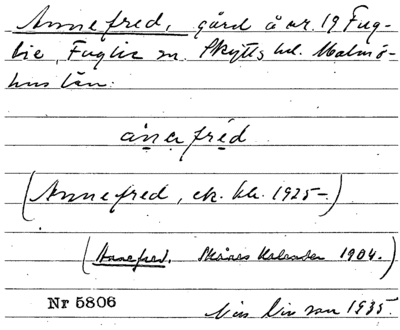 Annefred, gård å nr. 19 Fug-
lie, Fuglie sn. Skytts hd. Malmö-
hus län.
ånefred
(Annefred, ek. kb. 1925–)
(Annefred. Skånes Kalender 1904.)
Nr 5806
1935.